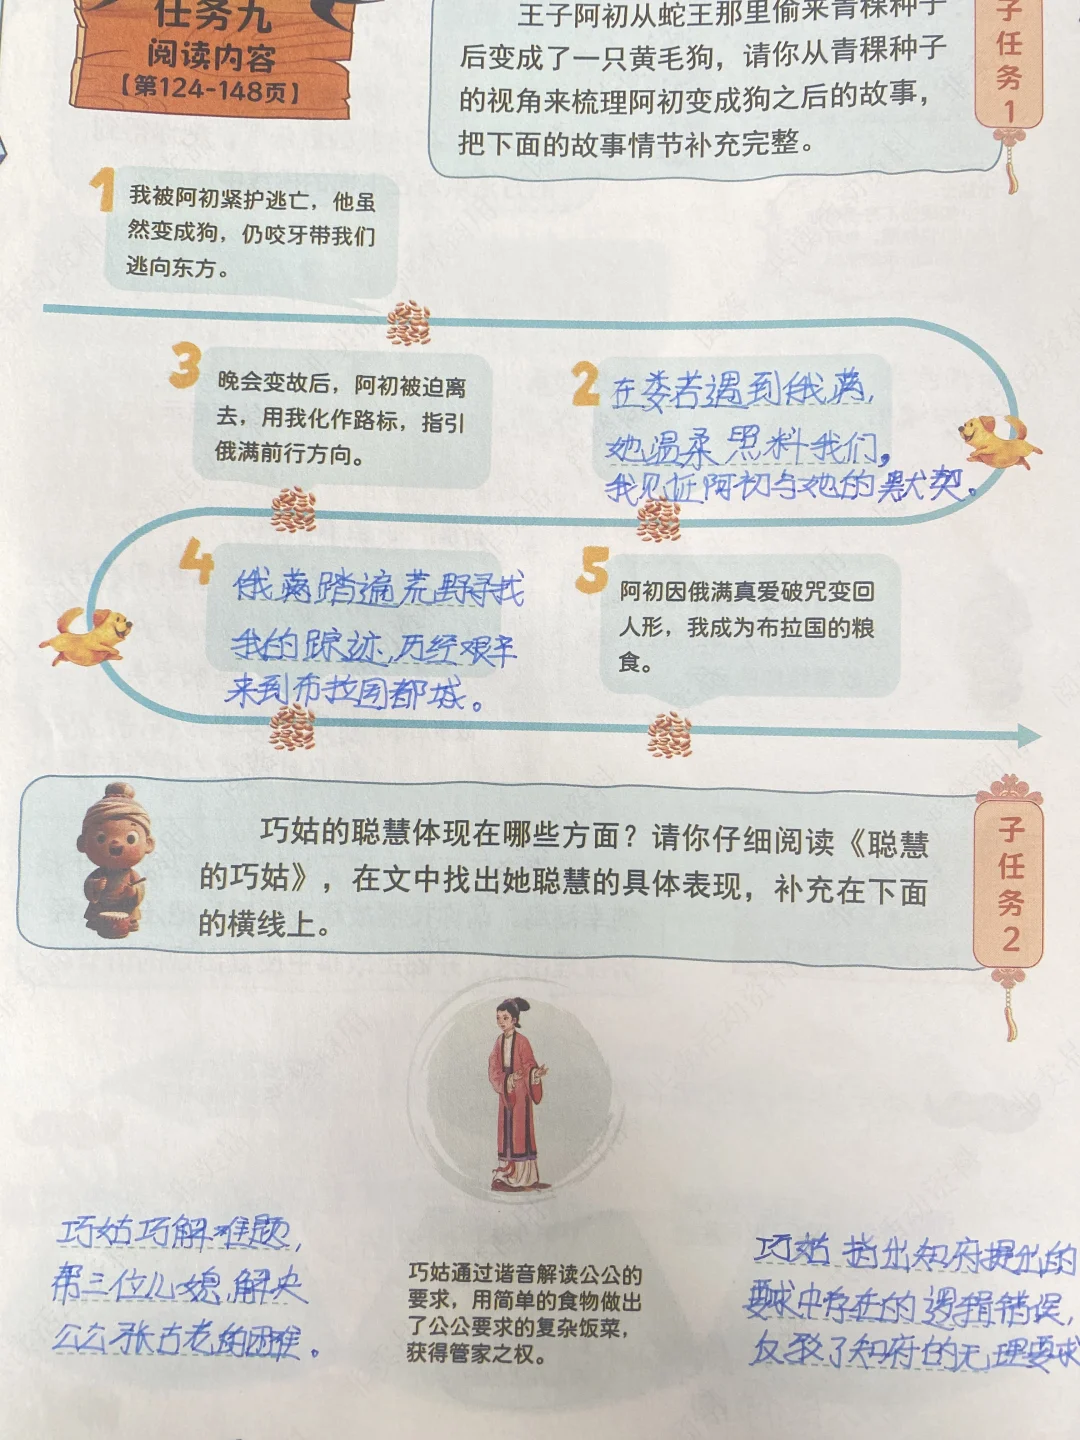 任务九
阅读内容
【第124-148页】
王子阿初从蛇王那里偷来青稞种子
后变成了一只黄毛狗，请你从青稞种子
的视角来梳理阿初变成狗之后的故事，
把下面的故事情节补充完整。
子任务1
1
我被阿初紧护逃亡，他虽
然变成狗，仍咬牙带我们
逃向东方。
2
在娄若遇到俄满，
她温柔照料我们，
我见证阿初与她的默契。
3
晚会变故后，阿初被迫离
去，用我化作路标，指引
俄满前行方向。
4
俄满踏遍荒野寻找
我的踪迹，历经艰辛
来到布拉国都城。
5
阿初因俄满真爱破咒变回
人形，我成为布拉国的粮
食。
巧姑的聪慧体现在哪些方面？请你仔细阅读《聪慧
的巧姑》，在文中找出她聪慧的具体表现，补充在下面
的横线上。
子任务2
巧姑巧解难题，
帮三位儿媳解决
公公张古老的困难。
巧姑通过谐音解读公公的
要求，用简单的食物做出
了公公要求的复杂饭菜，
获得管家之权。
巧姑指出知府提出的
要求中存在的逻辑错误，
反驳了知府的无理要求